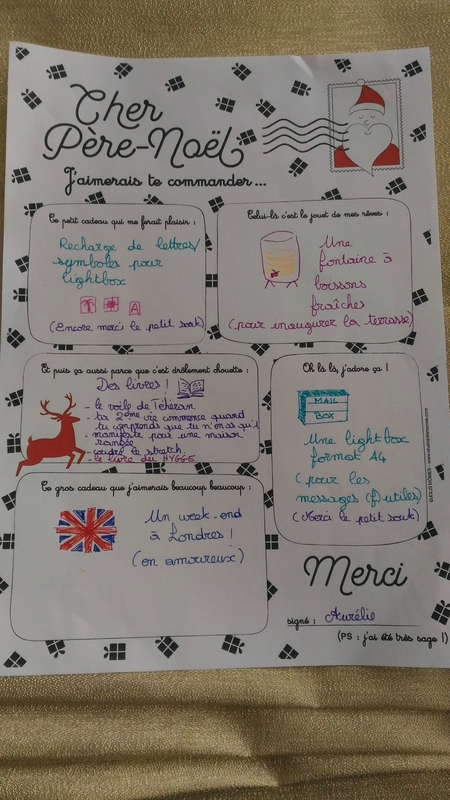 Cher
Père-Noël
J'aimerais te commander...
Ce petit cadeau qui me ferait plaisir :
Recharge de lettres/
symboles pour
lightbox
(Encore merci le petit souk)
Celui-là c'est le jouet de mes rêves :
Une
fontaine à
boissons
fraîches
(pour inaugurer la terrasse)
Et puis ça aussi parce que c'est drôlement chouette :
Des livres !
- le voile de Téhéran
- ta 2ème vie commence quand
tu comprends que tu n'en as qu'1
- manifeste pour une maison
rangée
- coudre le stretch
- le livre du HYGGE
Oh là là, j'adore ça !
MAIL
BOX
Une lightbox
format A4
(pour les
messages (f)utiles)
(Merci le petit souk)
Ce gros cadeau que j'aimerais beaucoup beaucoup :
Un week-end
à Londres !
(en amoureux)
Merci
signé : Aurélie
(PS : j'ai été très sage !)